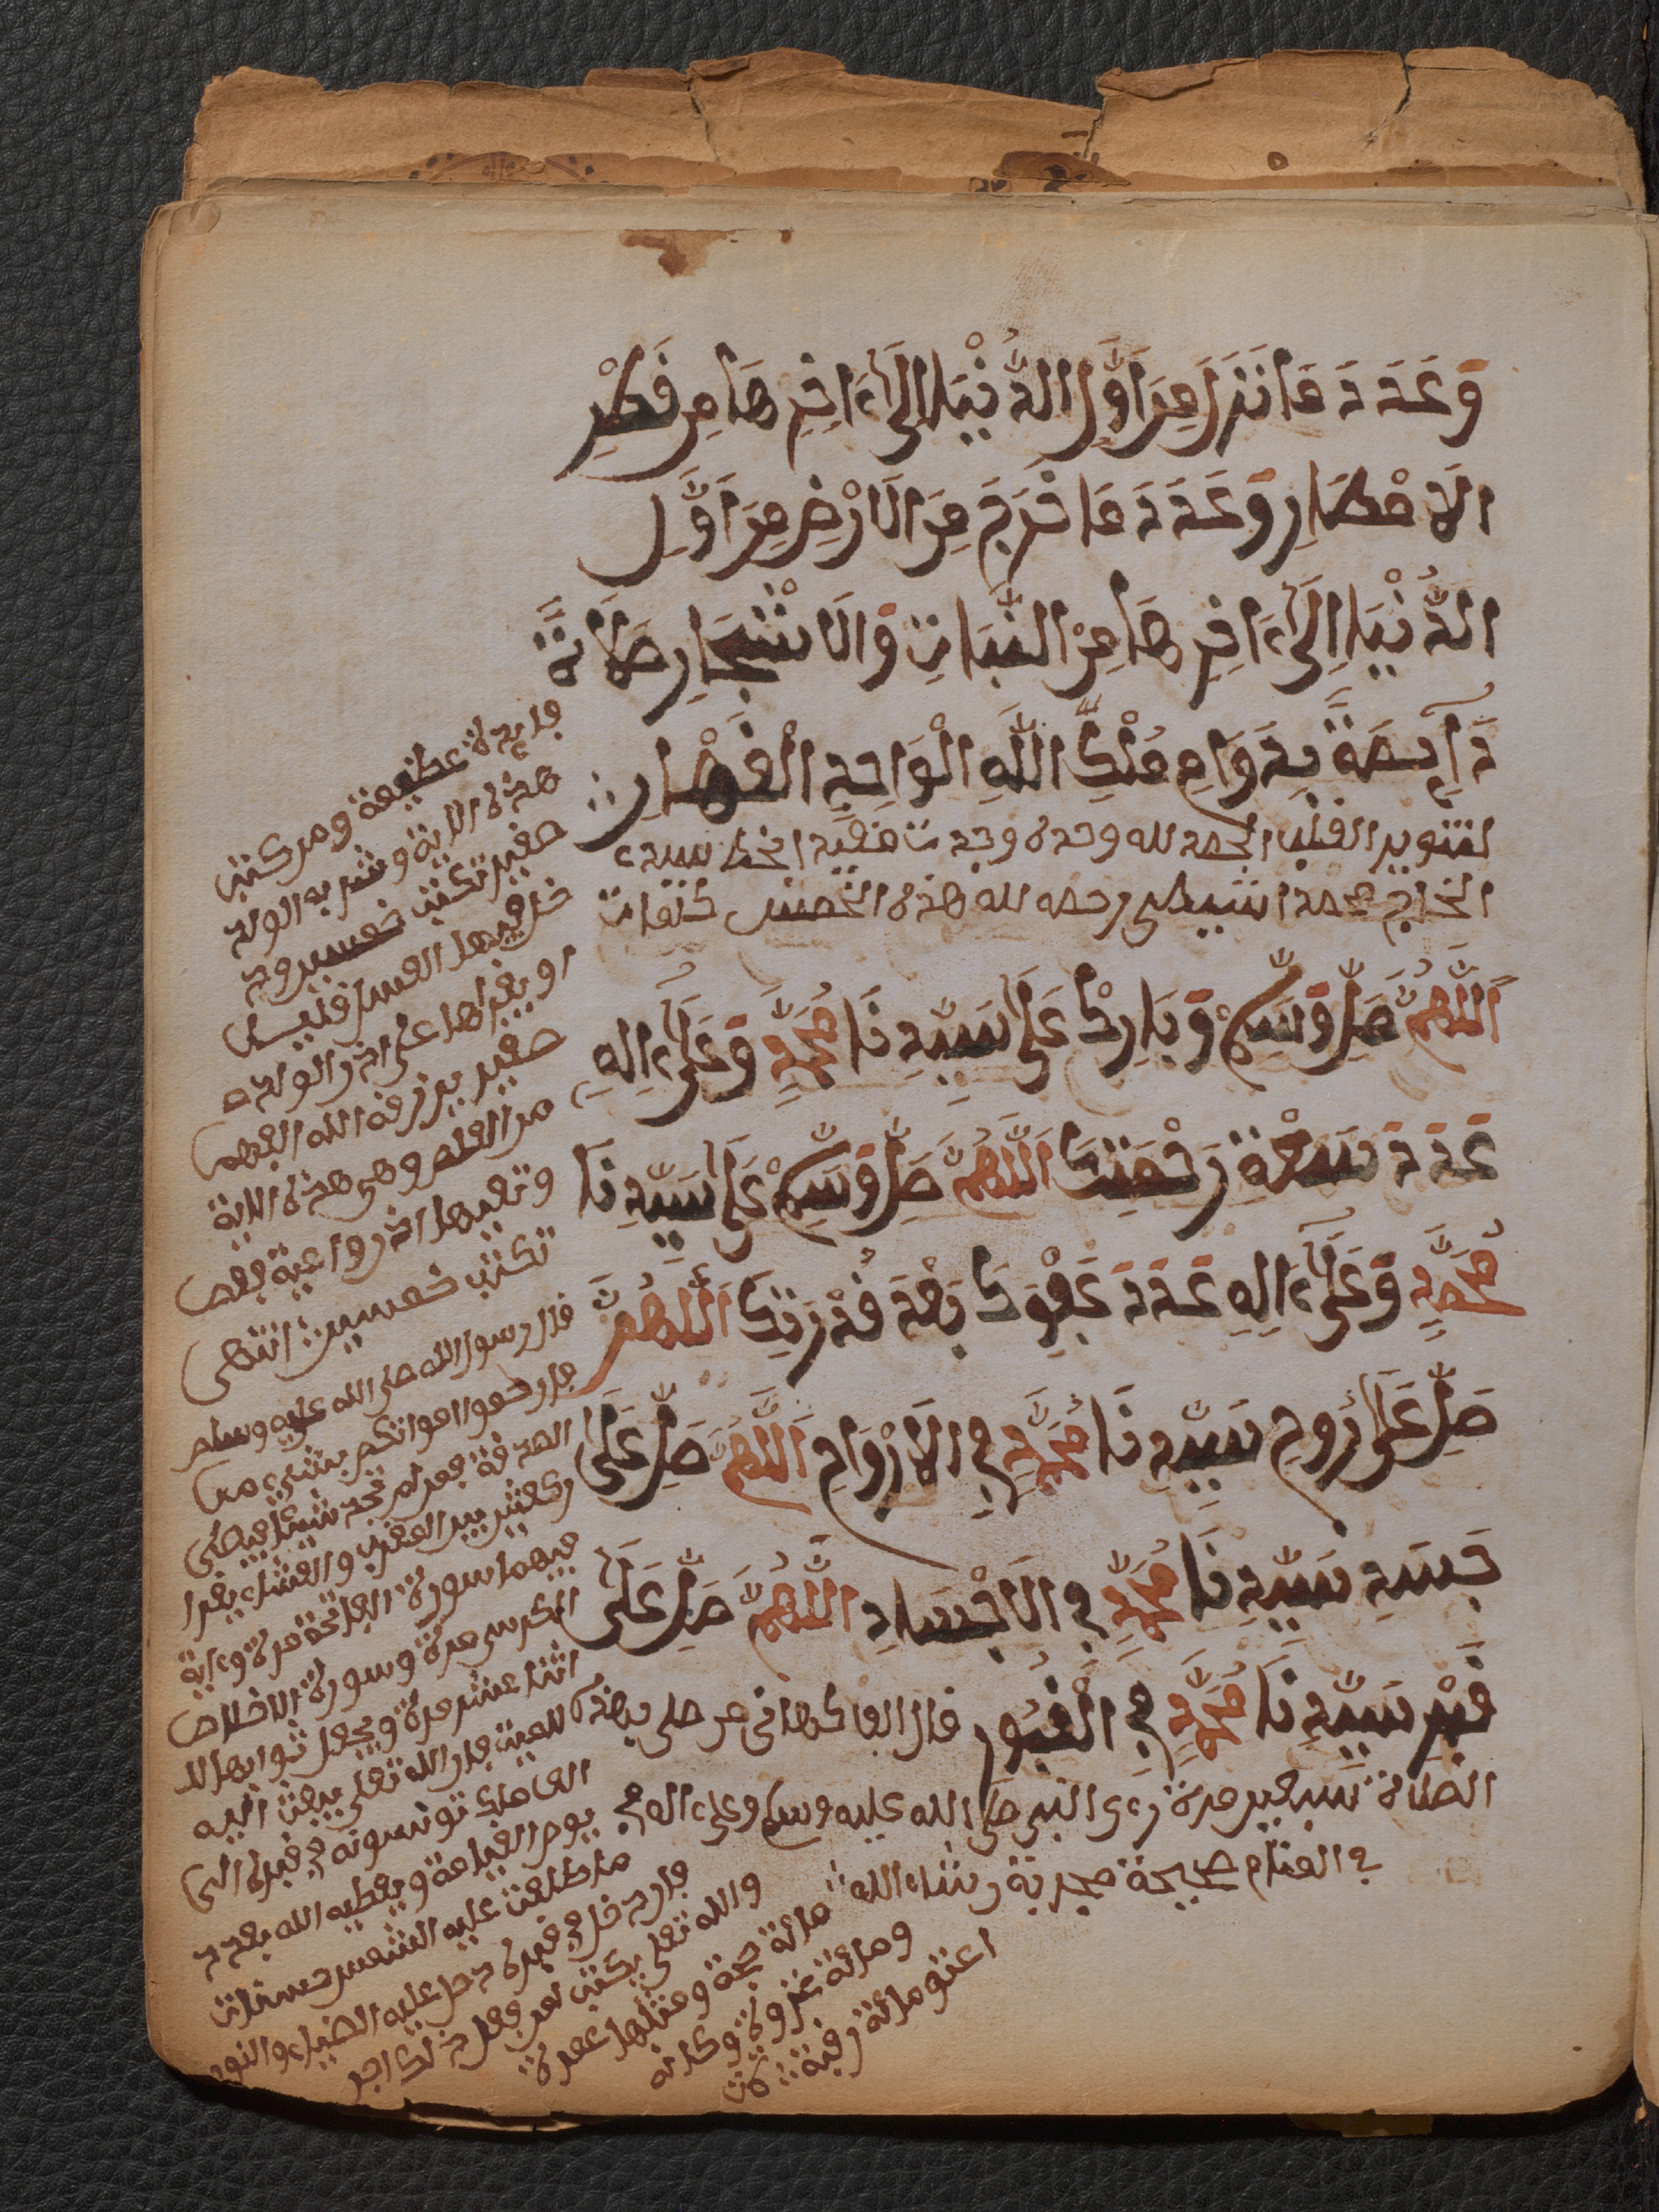 وَعَدَدَ مَا نَزَلَ مِنَ اَوَّلِ الدُّنْيَا اِلَىٰٓ ءَاخِرِهَا مِن قَطْرِ
الَامْطَارِ وَعَدَدَ مَا خَرَجَ مِنَ الَارْضِ مِنَ اَوَّلِ
الدُّنْيَا اِلَىٰٓ ءَاخِرِهَا مِنَ النَّبَاتِ وَالَاشْجَارِ صَلَاةً
دَآئِمَةً بِدَوَامِ مُلْكِ اللَّهِ الْوَاحِدِ الْقَهَّارِ
لتنوير القلب الحمد لله وحده وجدت مقيد
الحاج محمد رحمه لله هذه الخمس
اَللَّهُمَّ صَلِّ وَسَلِّمْ وَبَارِكْ عَلَىٰ سَيِّدِنَا مُحَمَّدٍ وَعَلَىٰٓ ءَالِهِ
عَدَدَ سَعَةِ رَحْمَتِكَ اَللَّهُمَّ صَلِّ وَسَلِّمْ عَلَىٰ سَيِّدِنَا
مُحَمَّدٍ وَعَلَىٰٓ ءَالِهِ عَدَدَ عَفْوِكَ بَعْدَ قُدْرَتِكَ اَللَّهُمَّ
صَلِّ عَلَىٰ رُوحِ سَيِّدِنَا مُحَمَّدٍ فِي الَارْوَاحِ اَللَّهُمَّ صَلِّ عَلَىٰ
جَسَدِ سَيِّدِنَا مُحَمَّدٍ فِي الَاجْسَادِ اللَّهُمَّ صَلِّ عَلَىٰ
قَبْرِ سَيِّدِنَا مُحَمَّدٍ فِي الْقُبُورِ قال الفاكهاني من صلى بهذه
الصلاة سبعين مرة رءى النبي صلى الله عليه وسلم وعلى ءاله
في المنام صحيحة مجربة نشاء الله
فايدة عظيمة ومن كتب
هذه الاية وشربه الولد
صغير تكتب خمسين
فيها العسل
او يقراها على الولد
صغير يرزقه الله الفهم
من العلم وهي هذه الاية
وتعيها اذن واعية
تكتب خمسين انتهى
قال رسول الله صلى الله عليه وسلم
قال رحموا امواتكم بشيء من
الصدقة فمن لم يجد شيئا فيصلى
ركعتين بين المغرب والعشاء يقرا
فيهما سورة الفاتحة مرة وءاية
الكرسي مرة وسورة الاخلاص
اثنا عشر مرة ويجعل ثوابها
للميت فان الله تعلى يبعث اليه
الف ملك تونسونه في قبره الى
يوم القيامة ويعطيه الله بعدد
ما طلعت عليه الشمس حسنات
فان دخل في قبره دخل عليه الضياء والنور
والله تعلى يكتب لمن فعل ذلك اجر
مائة حجة ومثلها عمرة
ومائة غزوة وكانه
اعتق مائة رقبة